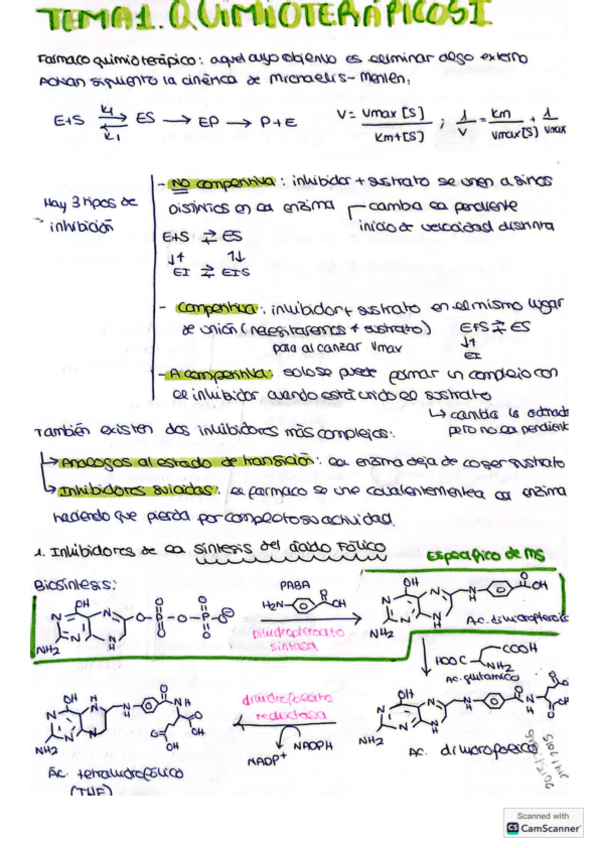 TEMA 1. QUIMIOTERÁPICOS I
Fármaco quimioterápico: aquel cuyo objetivo es eliminar algo externo
Actúan siguiendo la cinética de Michaelis-Menten:
E+S ⇄ ES → EP → P+E
k1
k1
V = Vmax [S] / Km+[S] ; 1/V = Km / Vmax[S] + 1/Vmax
Hay 3 tipos de inhibición
- No competitiva: inhibidor + sustrato se unen a sitios
distintos en la enzima
cambia la pendiente
inicio de velocidad distinta
E+S ⇄ ES
↓↑ ↑↓
EI ⇄ EIS
- Competitiva: inhibidor + sustrato en el mismo lugar
de unión (necesitaremos + sustrato) E+S ⇄ ES
para alcanzar Vmax ↓↑
EI
- Acompetitiva: solo se puede formar un complejo con
el inhibidor cuando está unido el sustrato
↳ cambia la ordenada
pero no la pendiente
También existen dos inhibidores más complejos:
↳ Análogos al estado de transición: la enzima deja de coger sustrato
↳ Inhibidores suicidas: el fármaco se une covalentemente a la enzima
haciendo que pierda por completo su actividad.
1. Inhibidores de la síntesis del ácido fólico
Específico de MS
Biosíntesis:
PABA
Dihidropteroato
sintasa
Ac. dihidropteroic
HOOC COOH
NH2
Ac. glutámico
dihidrofolato
reductasa
NADP+ NADPH
Ac. dihidrofólico
Ác. tetrahidrofólico
(THF)
Scanned with
CS CamScanner